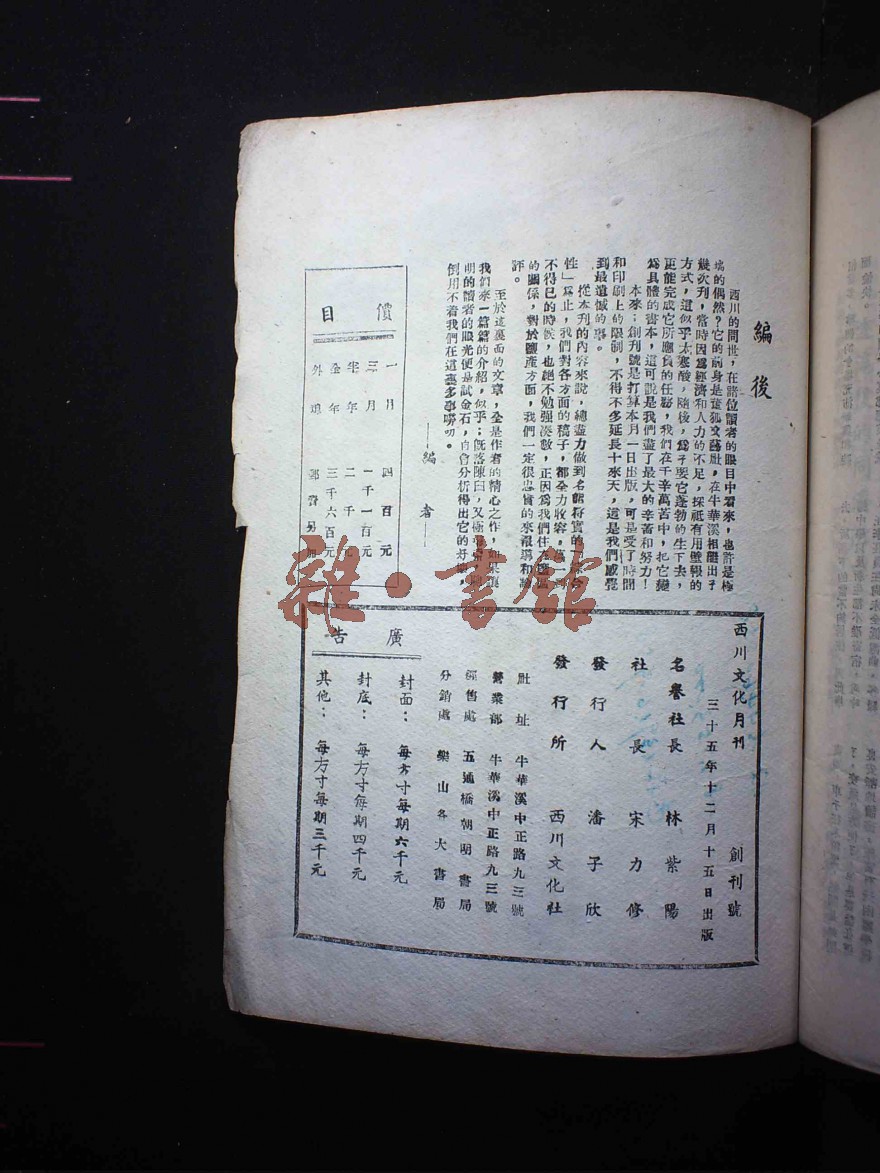 編後
西川的問世，在諸位讀者的眼目中看來，也許是極
端的偶然？它的前身是 文藝社，在牛華溪相繼出了
幾次刋，當時因爲經濟和人力的不足，採祗有用壁報的
方式，這似乎太寒酸，隨後，爲了要它蓬勃的生下去，
更能完成它所應負的任務，我們在千辛萬苦中，把它變
爲具體的書本，這可說是我們盡了最大的辛苦和努力！
本來：創刋號是打算本月一日出版，可是受了時間
和印刷上的限制，不得不多延長十來天，這是我們感覺
到最遺憾的事。
從本刋的內容來說，總盡力做到名副符實的「綜合
性」爲止，我們對各方面的稿子，都全力收容，萬一
不得已的時候，也絕不勉強湊數，正因爲我們住在
的關係，對於鹽產方面，我們一定很忠實的來報導和
評。
至於這裏面的文章，全是作者的精心之作，如果讓
我們來一篇篇的介紹，似乎；旣落陳臼，又極
明的讀者的眼光便是試金石，自會分析得出它的好壞，
倒用不着我們在這裏多事嘮叨。
——編 者——
價目
一月 四百元
三月 一千一百元
半年 二千元
全年 三千六百元
外埠 郵費另加
雜·書館
西川文化月刊 創刊號
三十五年十二月十五日出版
名譽社長 林紫陽
社長 宋力修
發行人 潘子欣
發行所 西川文化社
社址 牛華溪中正路九三號
營業部 牛華溪中正路九三號
經售處 五通橋朝明書局
分銷處 樂山各大書局
廣告
封面：每方寸每期六千元
封底：每方寸每期四千元
其他：每方寸每期三千元